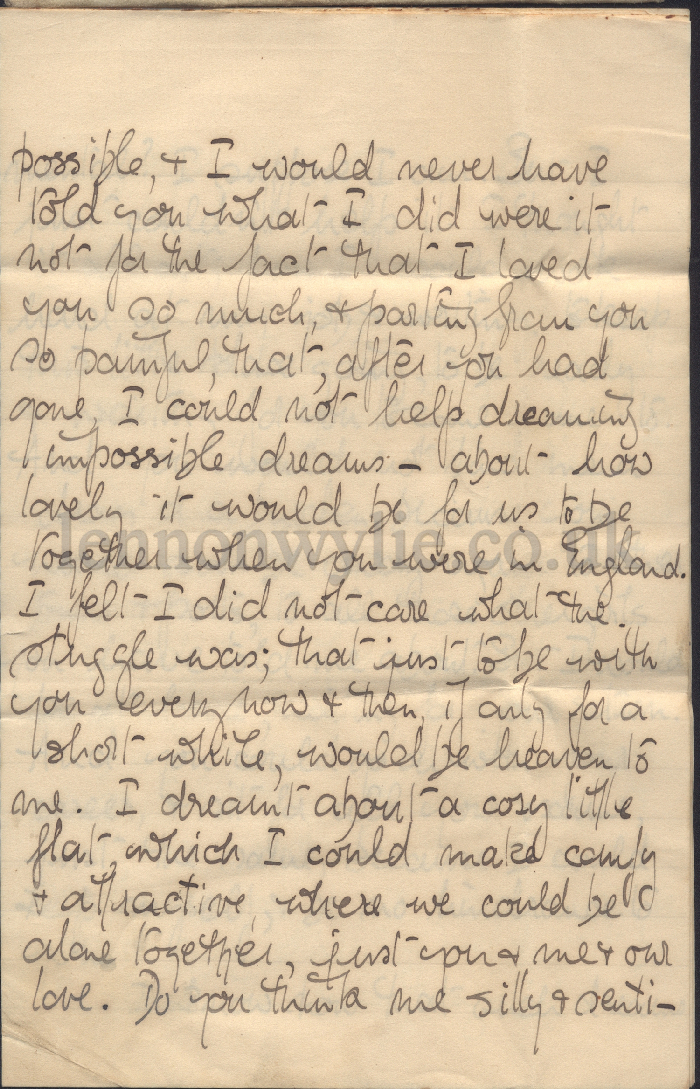 possible, & I would never have
told you what I did were it
not for the fact that I loved
you so much, & parting from you
so painful, that, after you had
gone, I could not help dreaming
impossible dreams – about how
lovely it would be for us to be
together when you were in England.
I felt I did not care what the
struggle was; that just to be with
you every now & then, if only for a
short while, would be heaven to
me. I dreamt about a cosy little
flat, which I could make comfy
& attractive, where we could be
alone together, just you & me & our
love. Do you think me silly & senti-
lennonwylie.co.uk